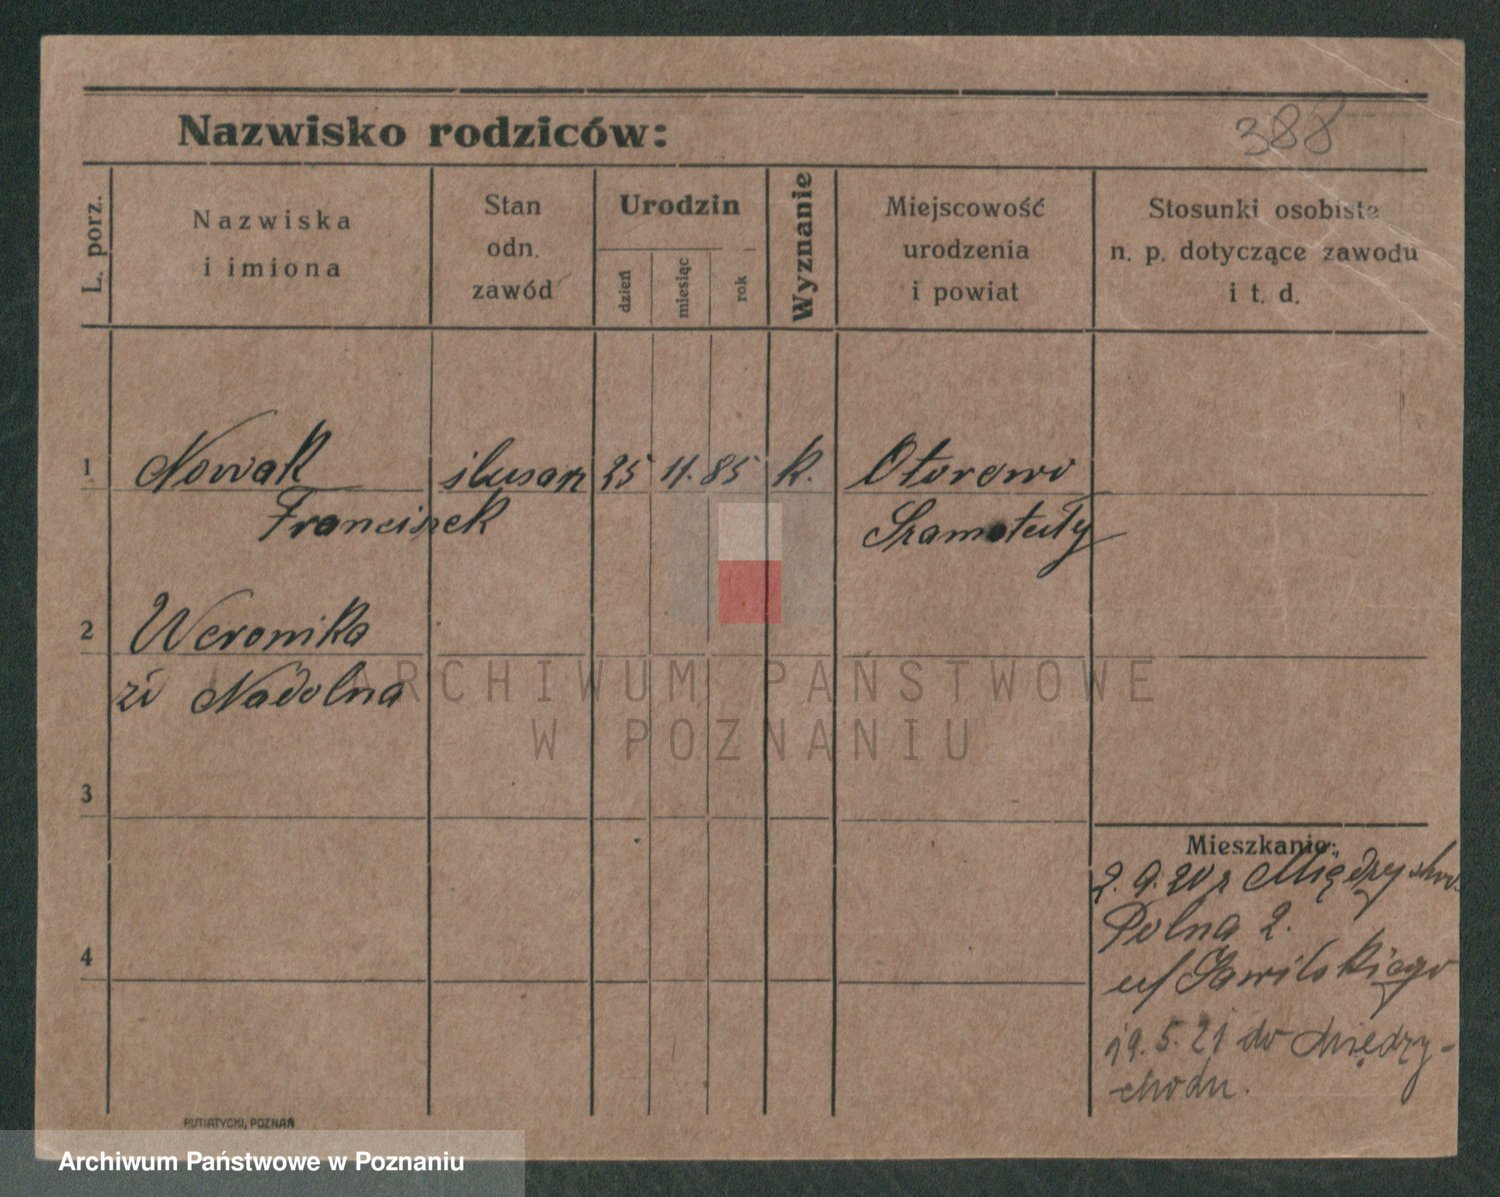 Nazwisko rodziców:
388
L. porz.
Nazwiska
i imiona
Stan
odn.
zawód
Urodzin
dzień
miesiąc
rok
Wyznanie
Miejscowość
urodzenia
i powiat
Stosunki osobiste
n. p. dotyczące zawodu
i t. d.
1 Nowak ślusarz 25 11. 85 k. Otorowo
Franciszek Szamotuły
2 Weronika
zd Nadolna
ARCHIWUM PAŃSTWOWE
W POZNANIU
3
Mieszkanie:
2. 9. 20 z Międzychod.
Polna 2.
u/ Gawilskiego
4
19. 5. 21 do Między-
chodu.
PUTIATYCKI, POZNAŃ
Archiwum Państwowe w Poznaniu